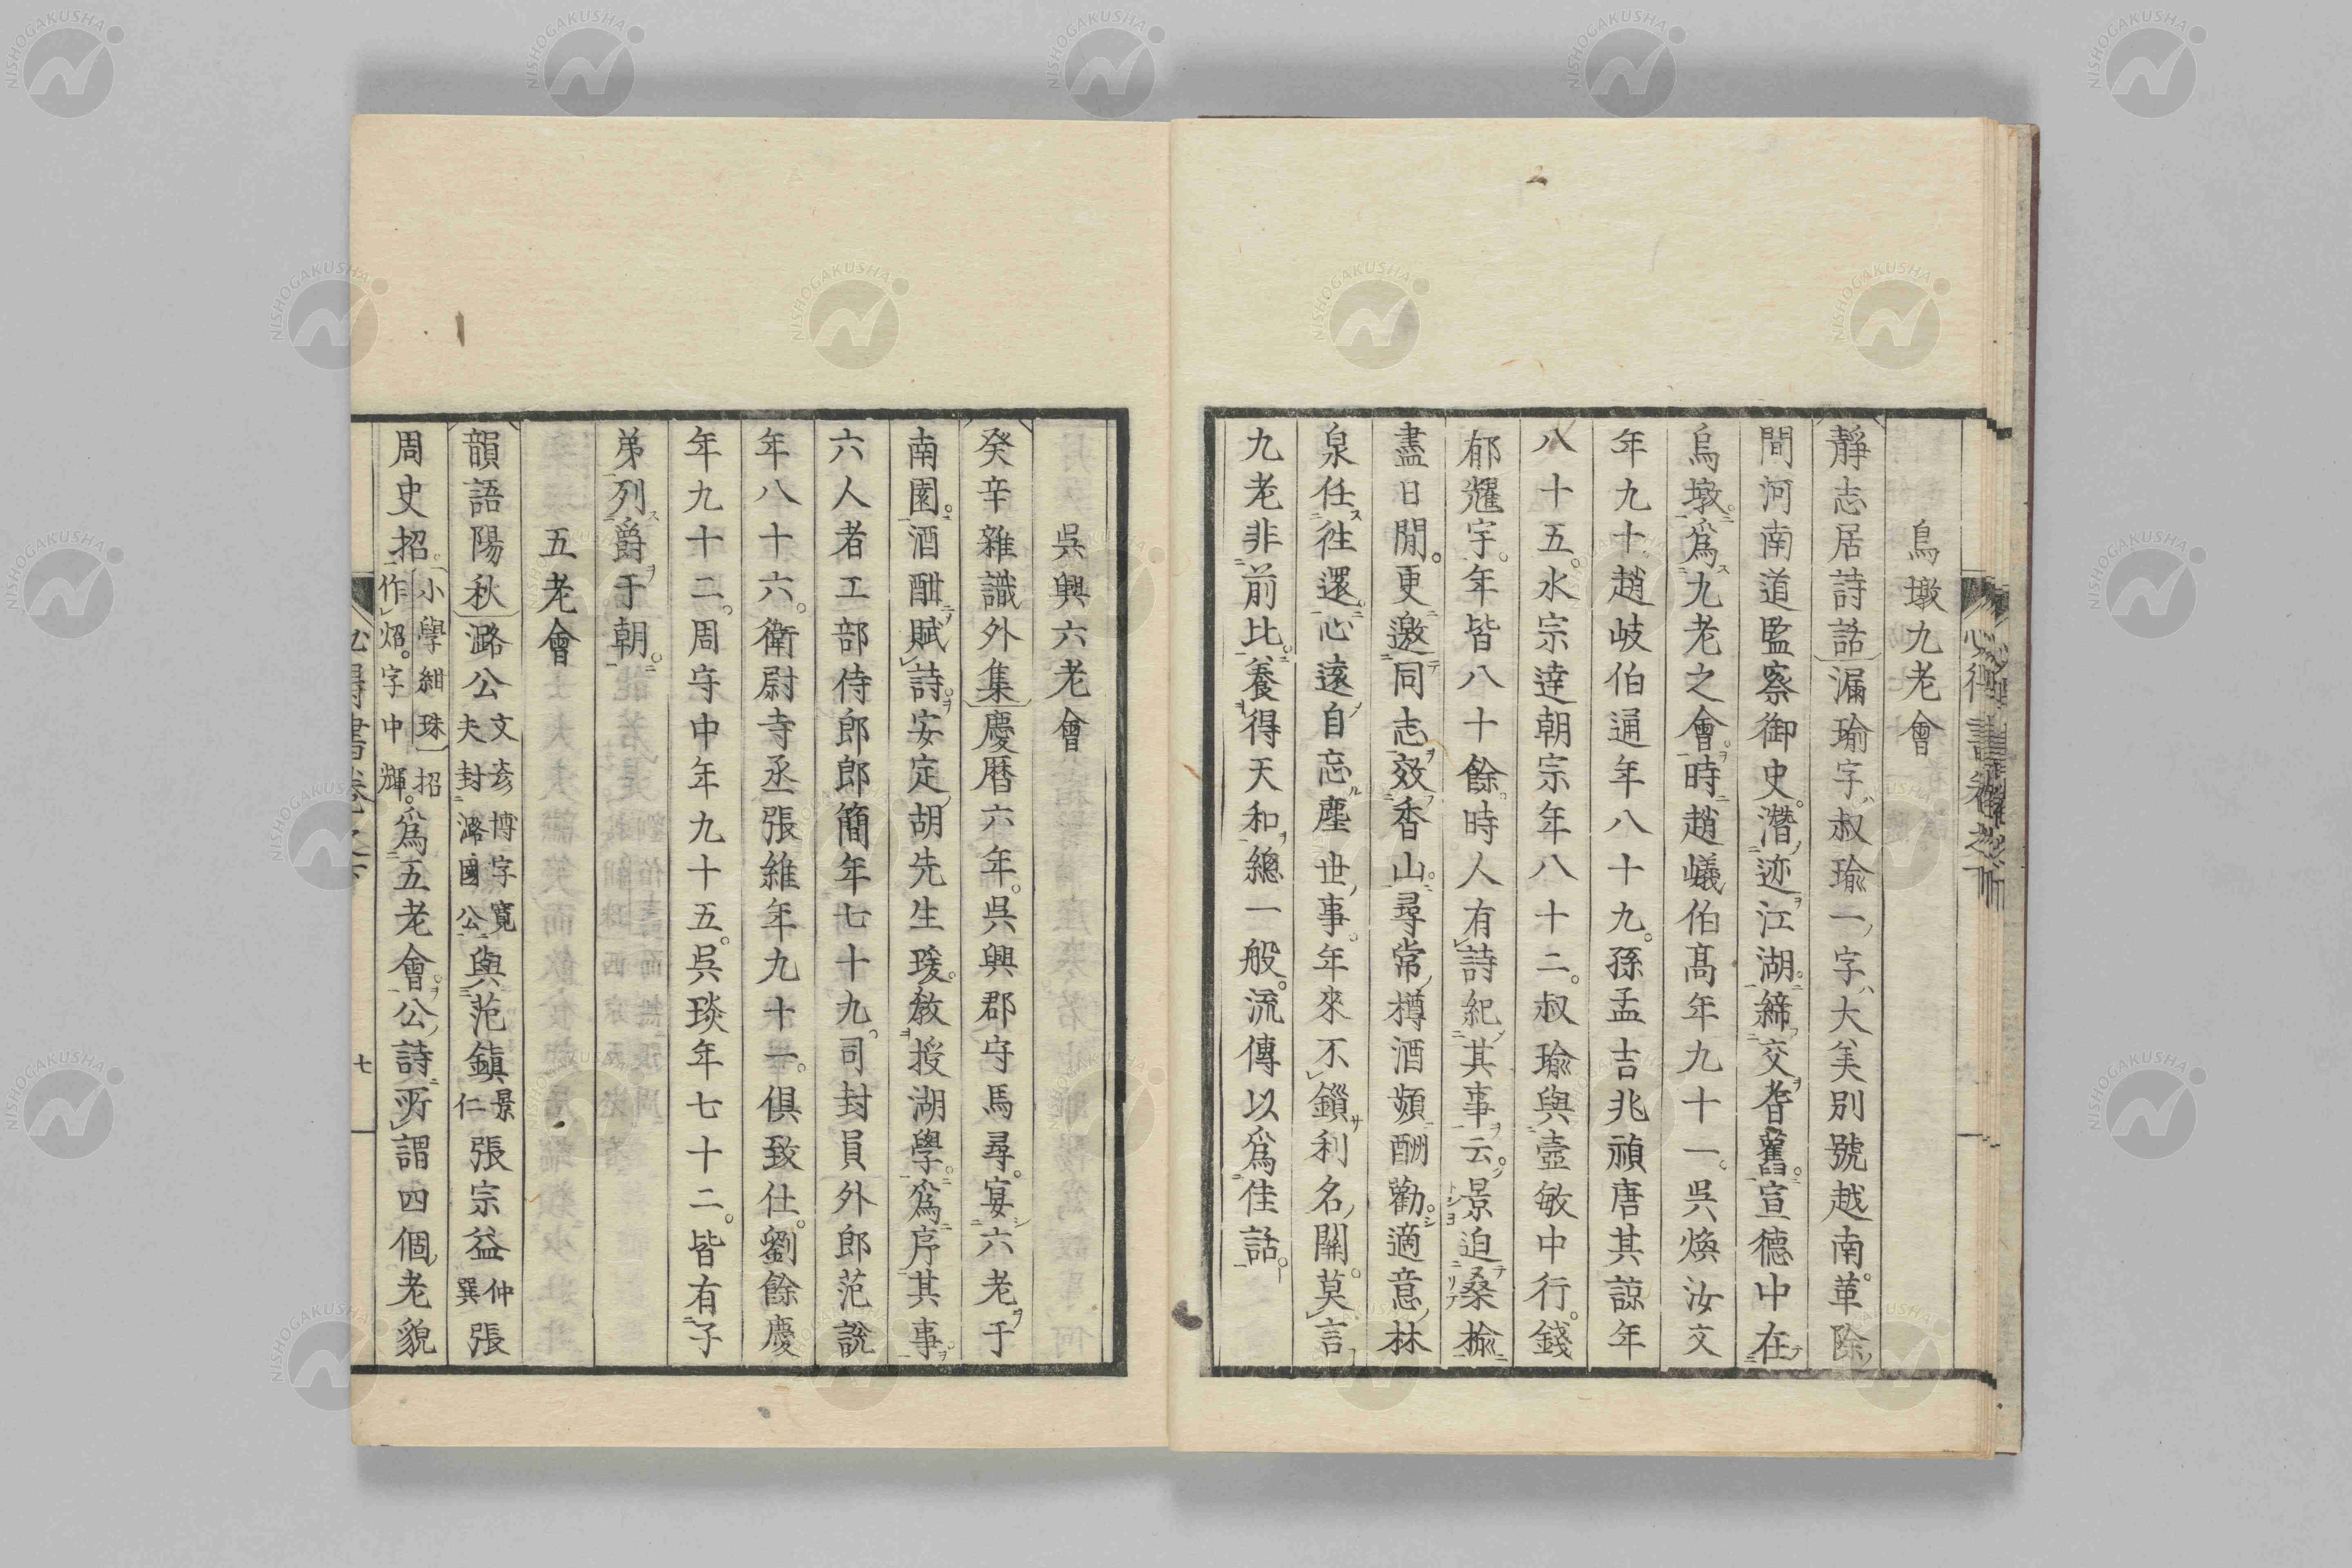 烏墩九老會
靜志居詩話漏瑜字叔瑜一字大美別號越南革除
間河南道監察御史潛迹江湖締交耆舊宣德中在
烏墩爲九老之會時趙巇伯高年九十一吳煥汝文
年九十趙岐伯通年八十九孫孟吉兆禎唐其諒年
八十五水宗達朝宗年八十二叔瑜與壼敏中行錢
郁耀宇年皆八十餘時人有詩紀其事云景迫桑楡
盡日閒更邀同志效香山尋常樽酒頻酬勸適意林
泉任徃還心遠自忘塵世事年來不鎖利名關莫言
九老非前比養得天和總一般流傳以爲佳話
吳興六老會
癸辛雜識外集慶曆六年吳興郡守馬尋宴六老于
南園酒酣賦詩安定胡先生瑗敎授湖學爲序其事
六人者工部侍郎郎簡年七十九司封員外郎范說
年八十六衛尉寺丞張維年九十一俱致仕劉餘慶
年九十二周守中年九十五吳琰年七十二皆有子
弟列爵于朝
五老會
韻語陽秋潞公文彥博字寬夫封潞國公與范鎮景仁張宗益仲巽張
周史招小學紺珠招作炤字中輝爲五老會公詩所謂四個老貌
七
NISHOGAKUSHA